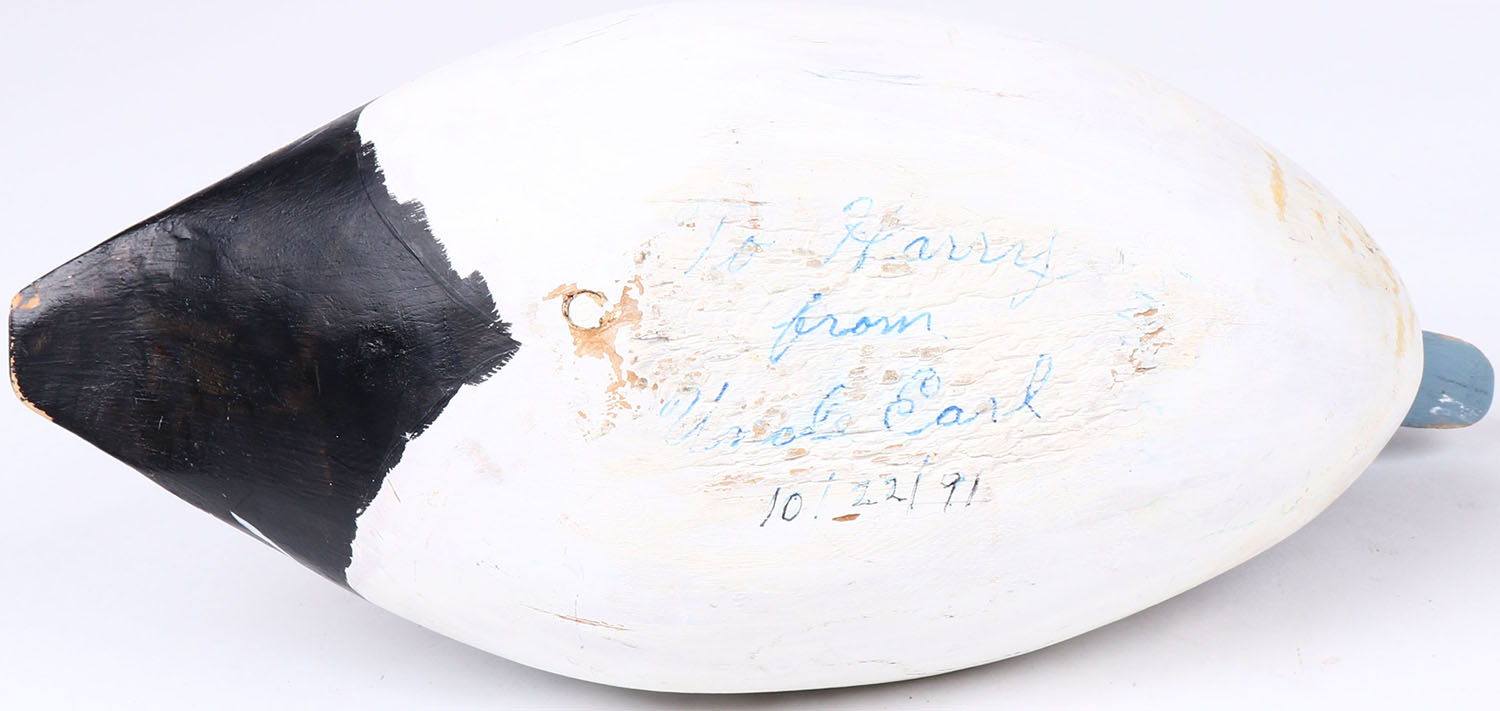 To Harry
from
Uncle Earl
10/22/91